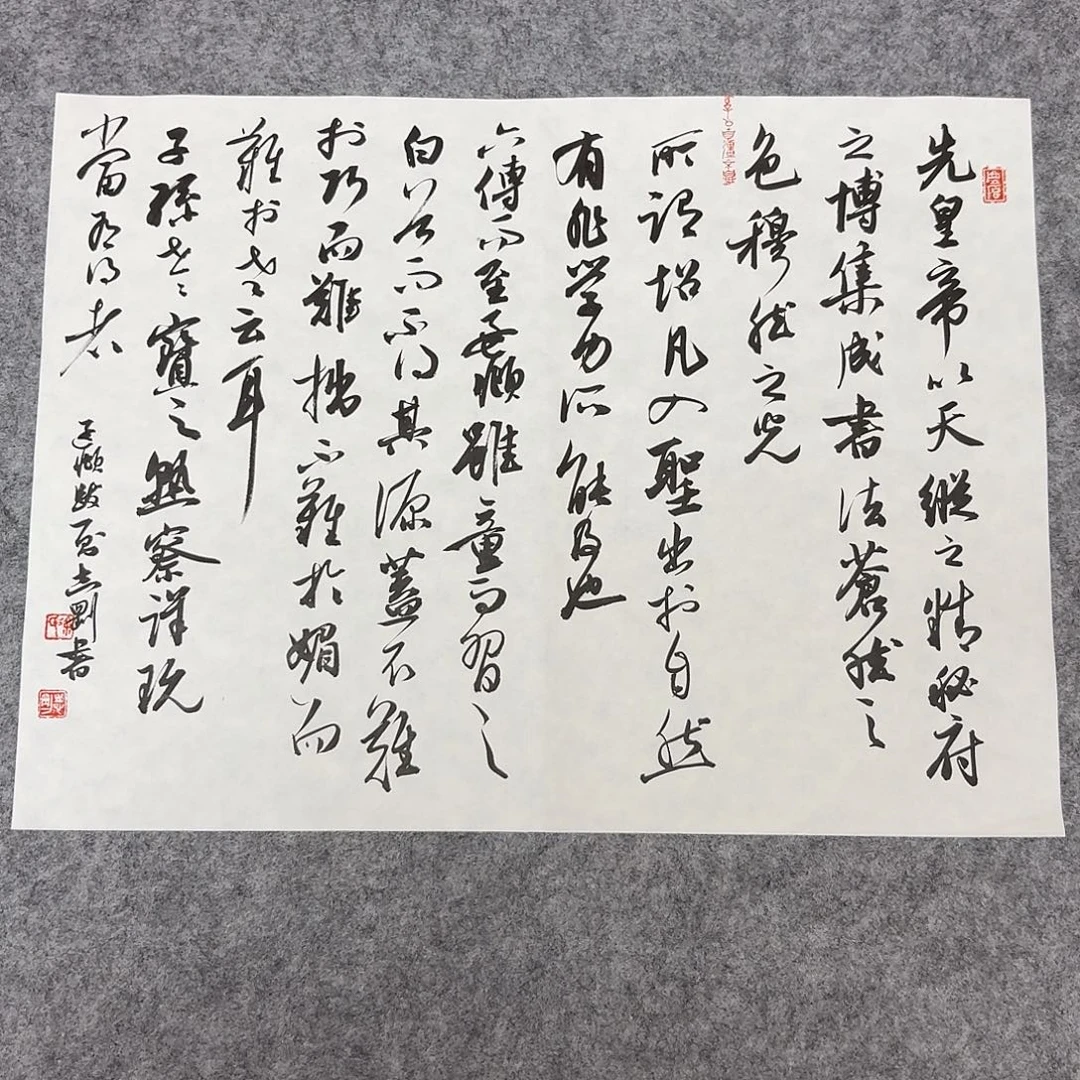 先皇帝以天縱之精秘府
之博集成書法蒼然之
色穆然之光
所謂超凡入聖出於自然
有非学力所能及也
六傳而至無頗雖童而習之
白公而不得其源蓋不難
於巧而難拙不難於媚而
難於老云耳
子孫世々寶之熟察詳玩
當有得者
書